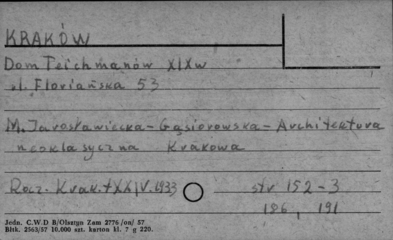 KRAKÓW
Dom Teichmanów XIXw
ul. Floriańska 53
M. Jarosławiecka-Gąsiorowska - Architektura
neoklasyczna Krakowa
Rocz. Krak. t XXIV. 1933 str 152-3
186, 191
Jedn. C.W.D B/Olsztyn Zam 2776/on/57
Bltk. 2563/57 10.000 szt. karton kl. 7 g 220.